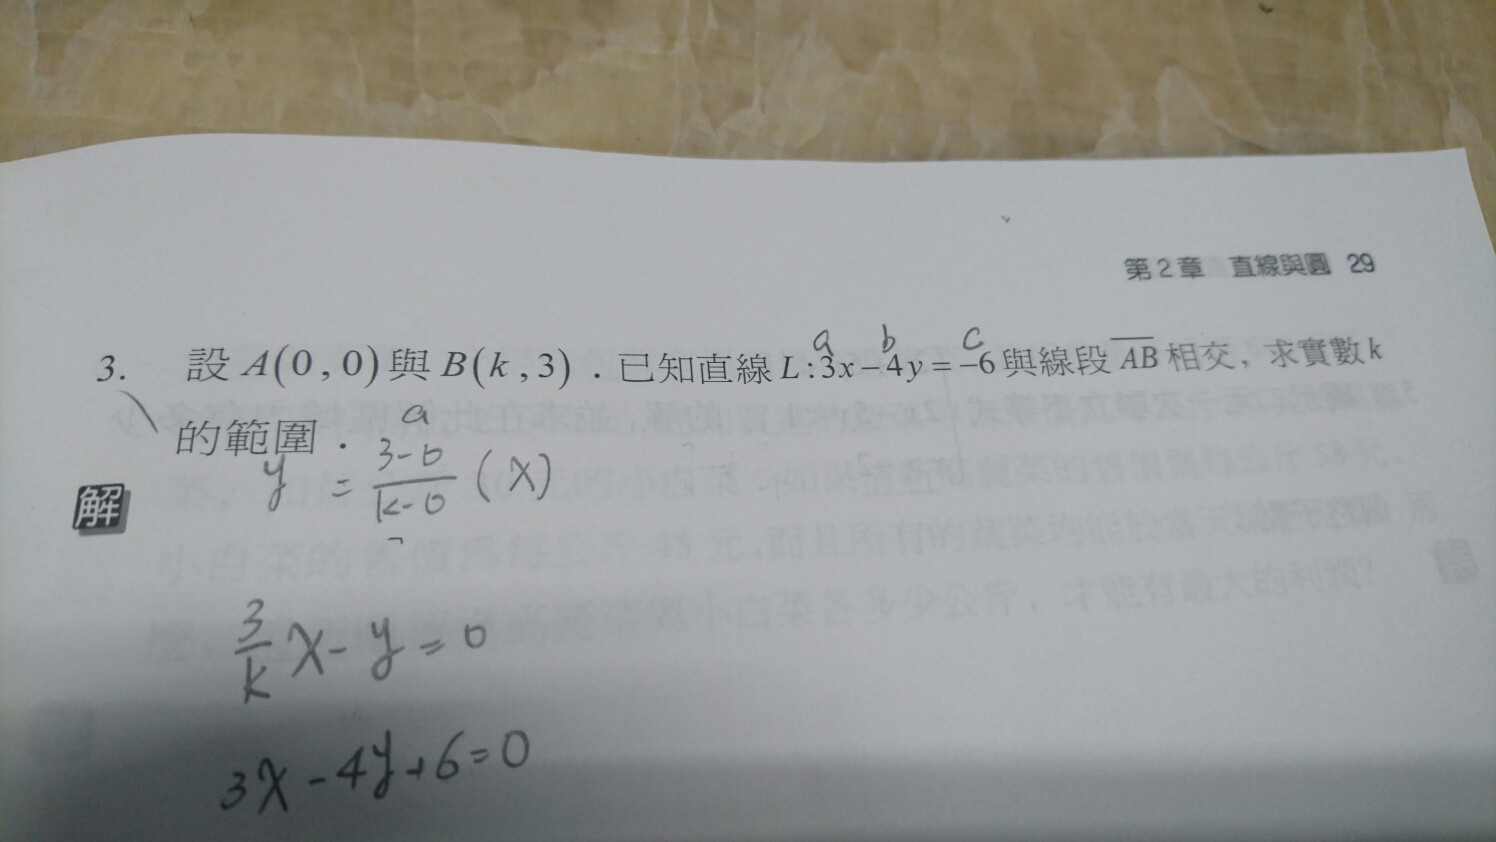 第2章 直線與圓 29
a b c
3. 設A(0,0)與B(k,3).已知直線L:3x-4y=-6與線段AB相交,求實數k
的範圍.
a
y = \frac{3-0}{k-0} (x)
解
\frac{3}{k} x - y = 0
3x - 4y + 6 = 0